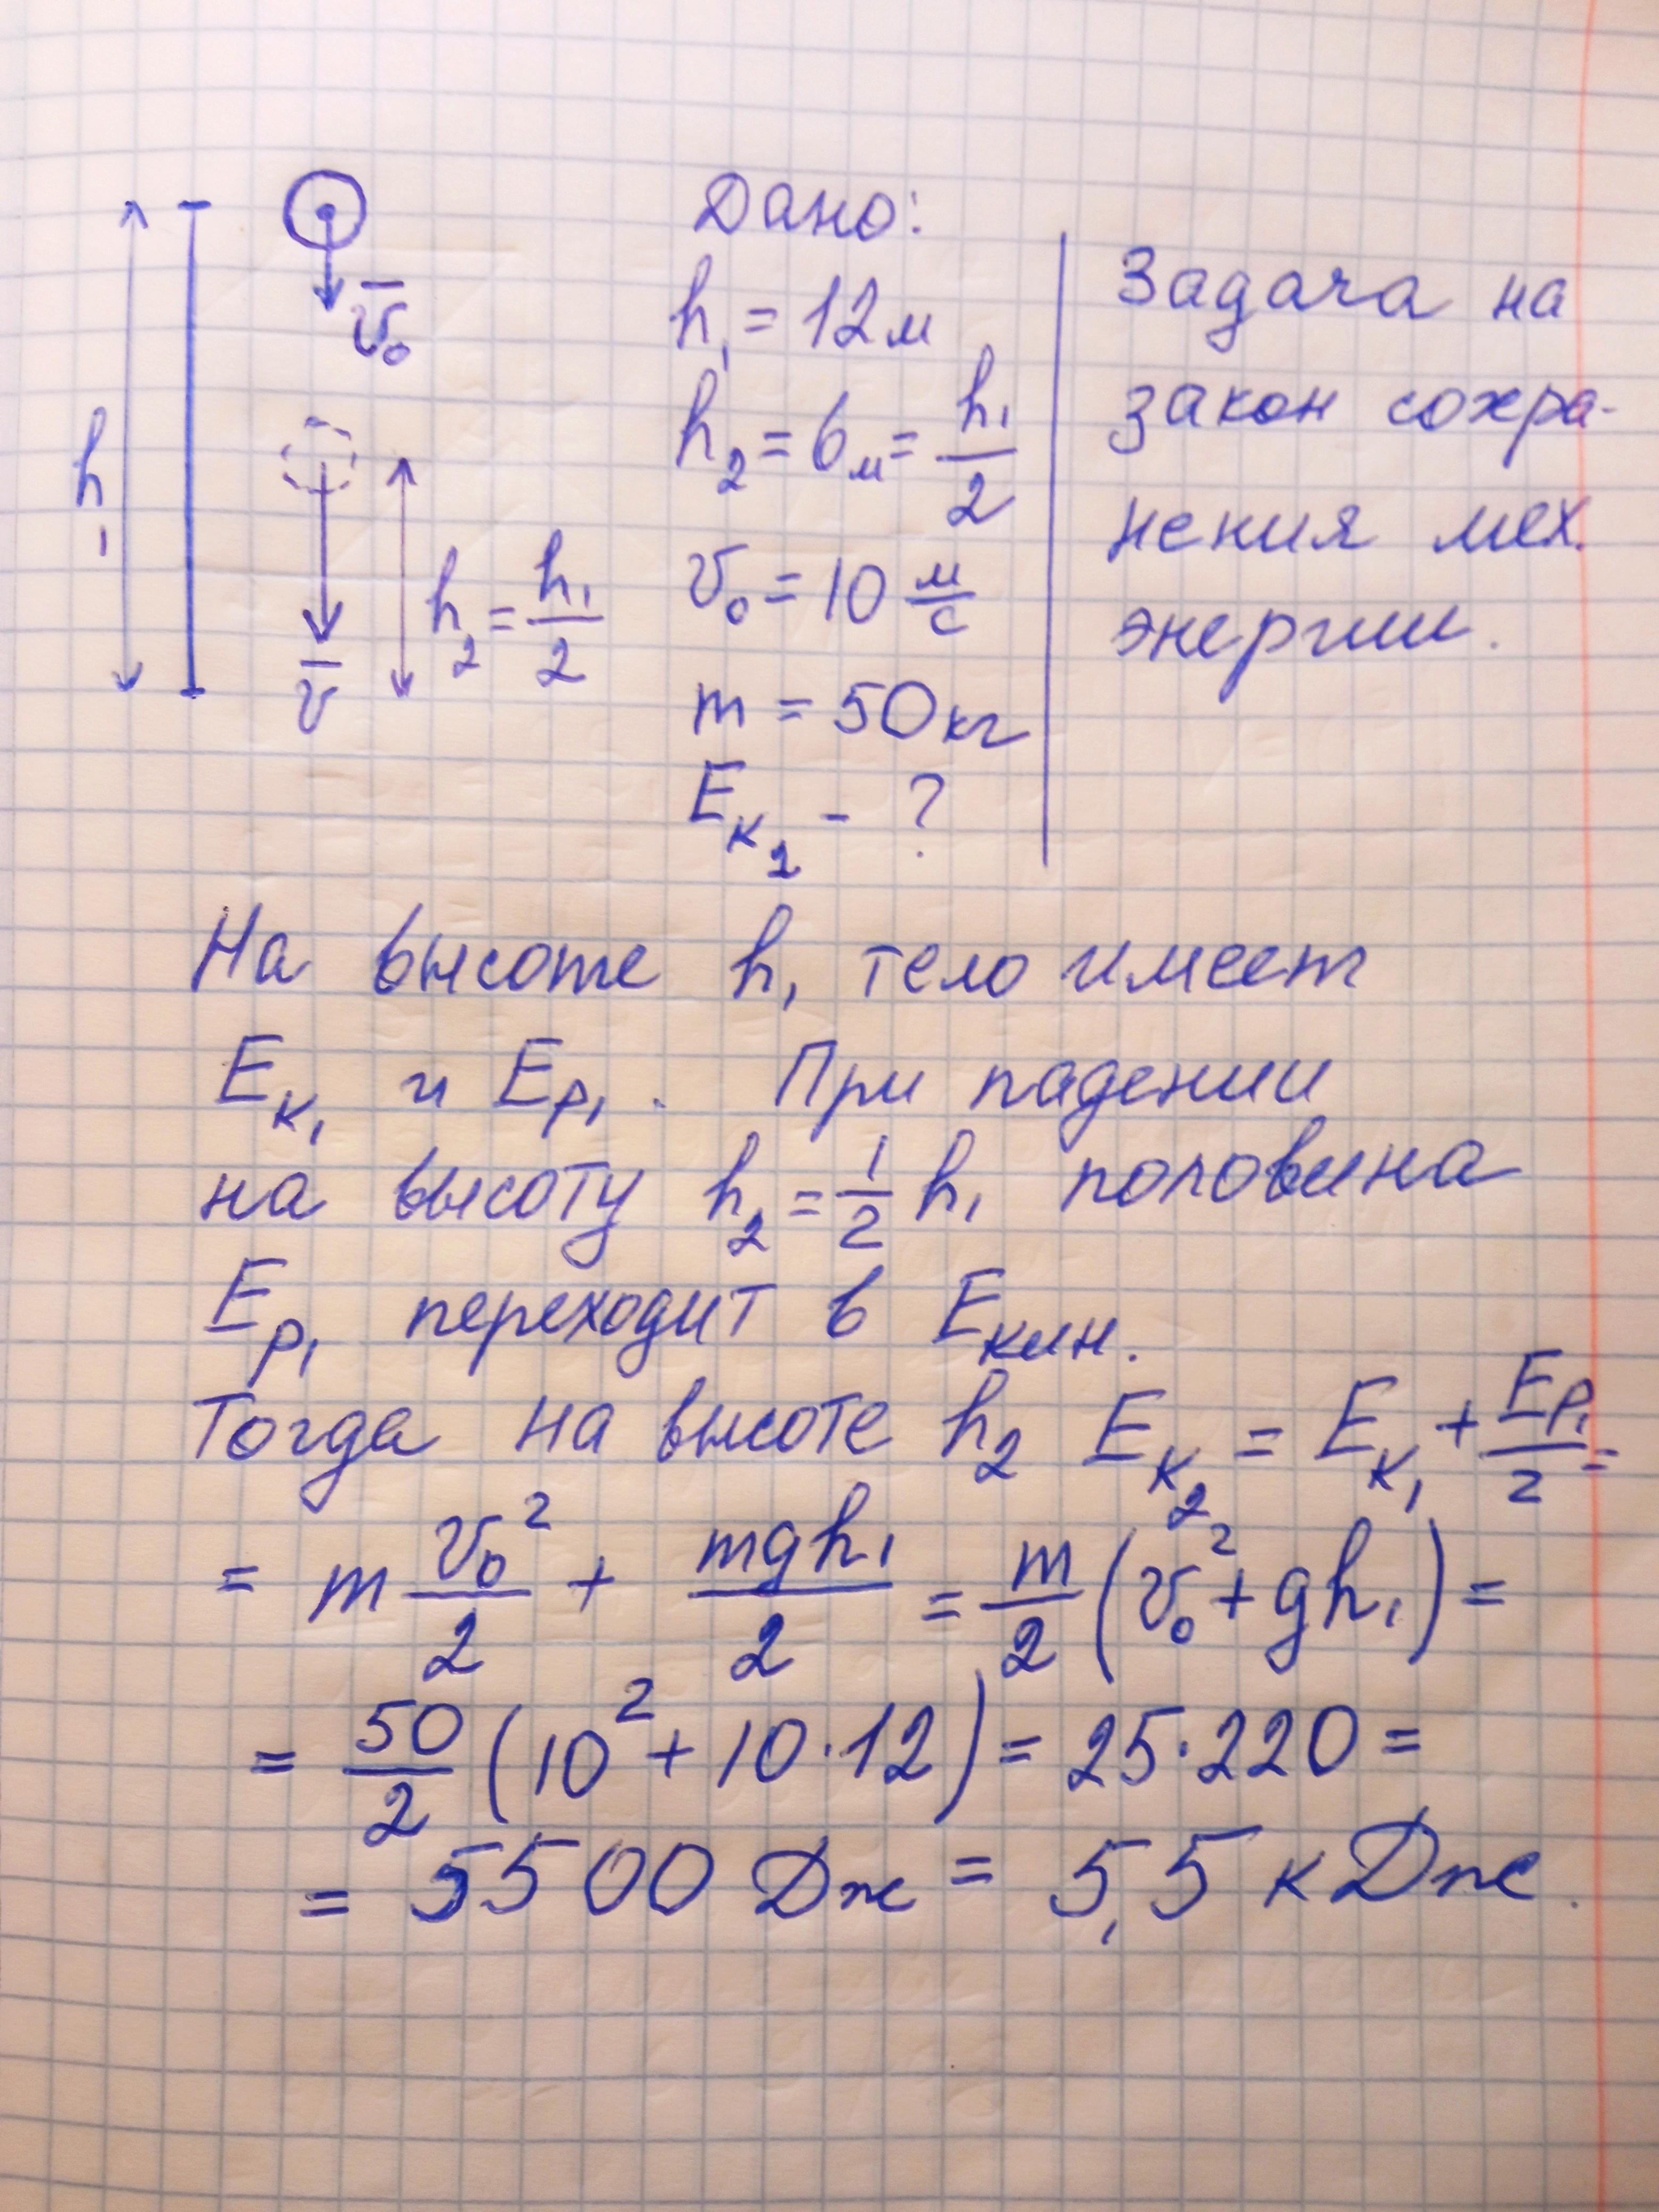 h₁
v̅₀
v̅
h₂ = h₁/2
Дано:
h₁ = 12 м
h₂ = 6 м = h₁/2
v₀ = 10 м/с
m = 50 кг
Eк₂ - ?
Задача на
закон сохра-
нения мех.
энергии.
На высоте h₁ тело имеет
Eк₁ и Eр₁. При падении
на высоту h₂ = 1/2 h₁ половина
Eр₁ переходит в Eкин.
Тогда на высоте h₂ Eк₂ = Eк₁ + Eр₁/2 =
= m v₀²/2 + mgh₁/2 = m/2 (v₀² + gh₁) =
= 50/2 (10² + 10·12) = 25·220 =
= 5500 Дж = 5,5 кДж.